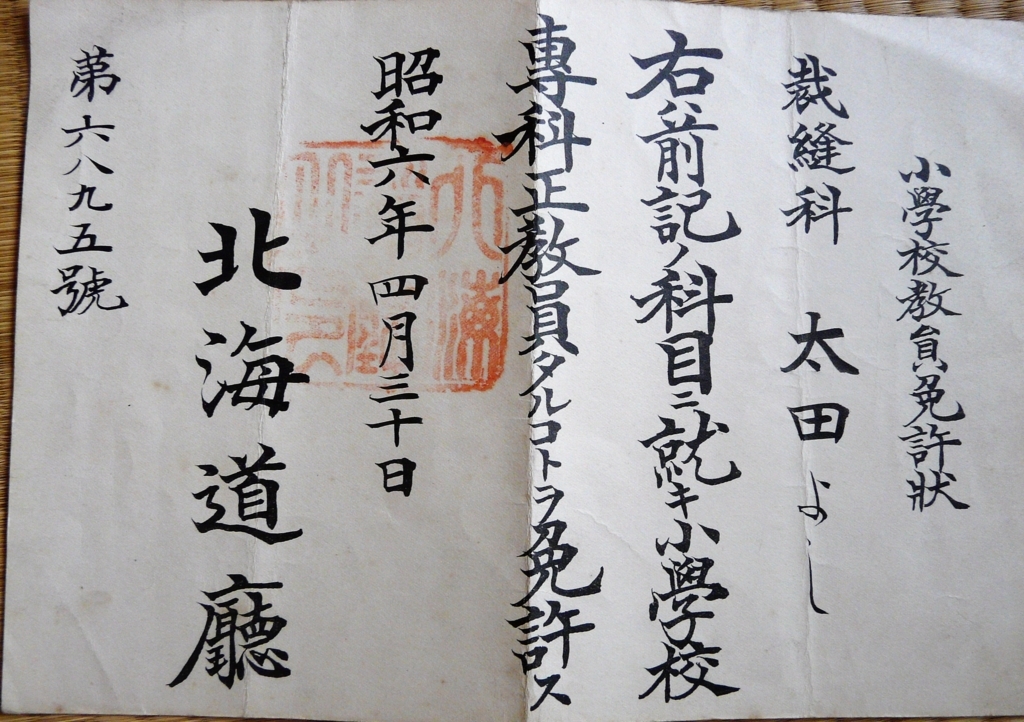 小學校教員免許狀
裁縫科　太田よし
右ハ前記ノ科目ニ就キ小學校
專科正教員タルコトヲ免許ス
昭和六年四月三十日
北海道廳
第六八九五號